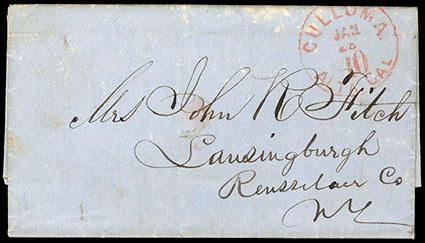 CULLOMA.
JAN
28
10
ALTA CAL
Mrs John R Fitch
Lansingburgh
Rensselaer Co
NY